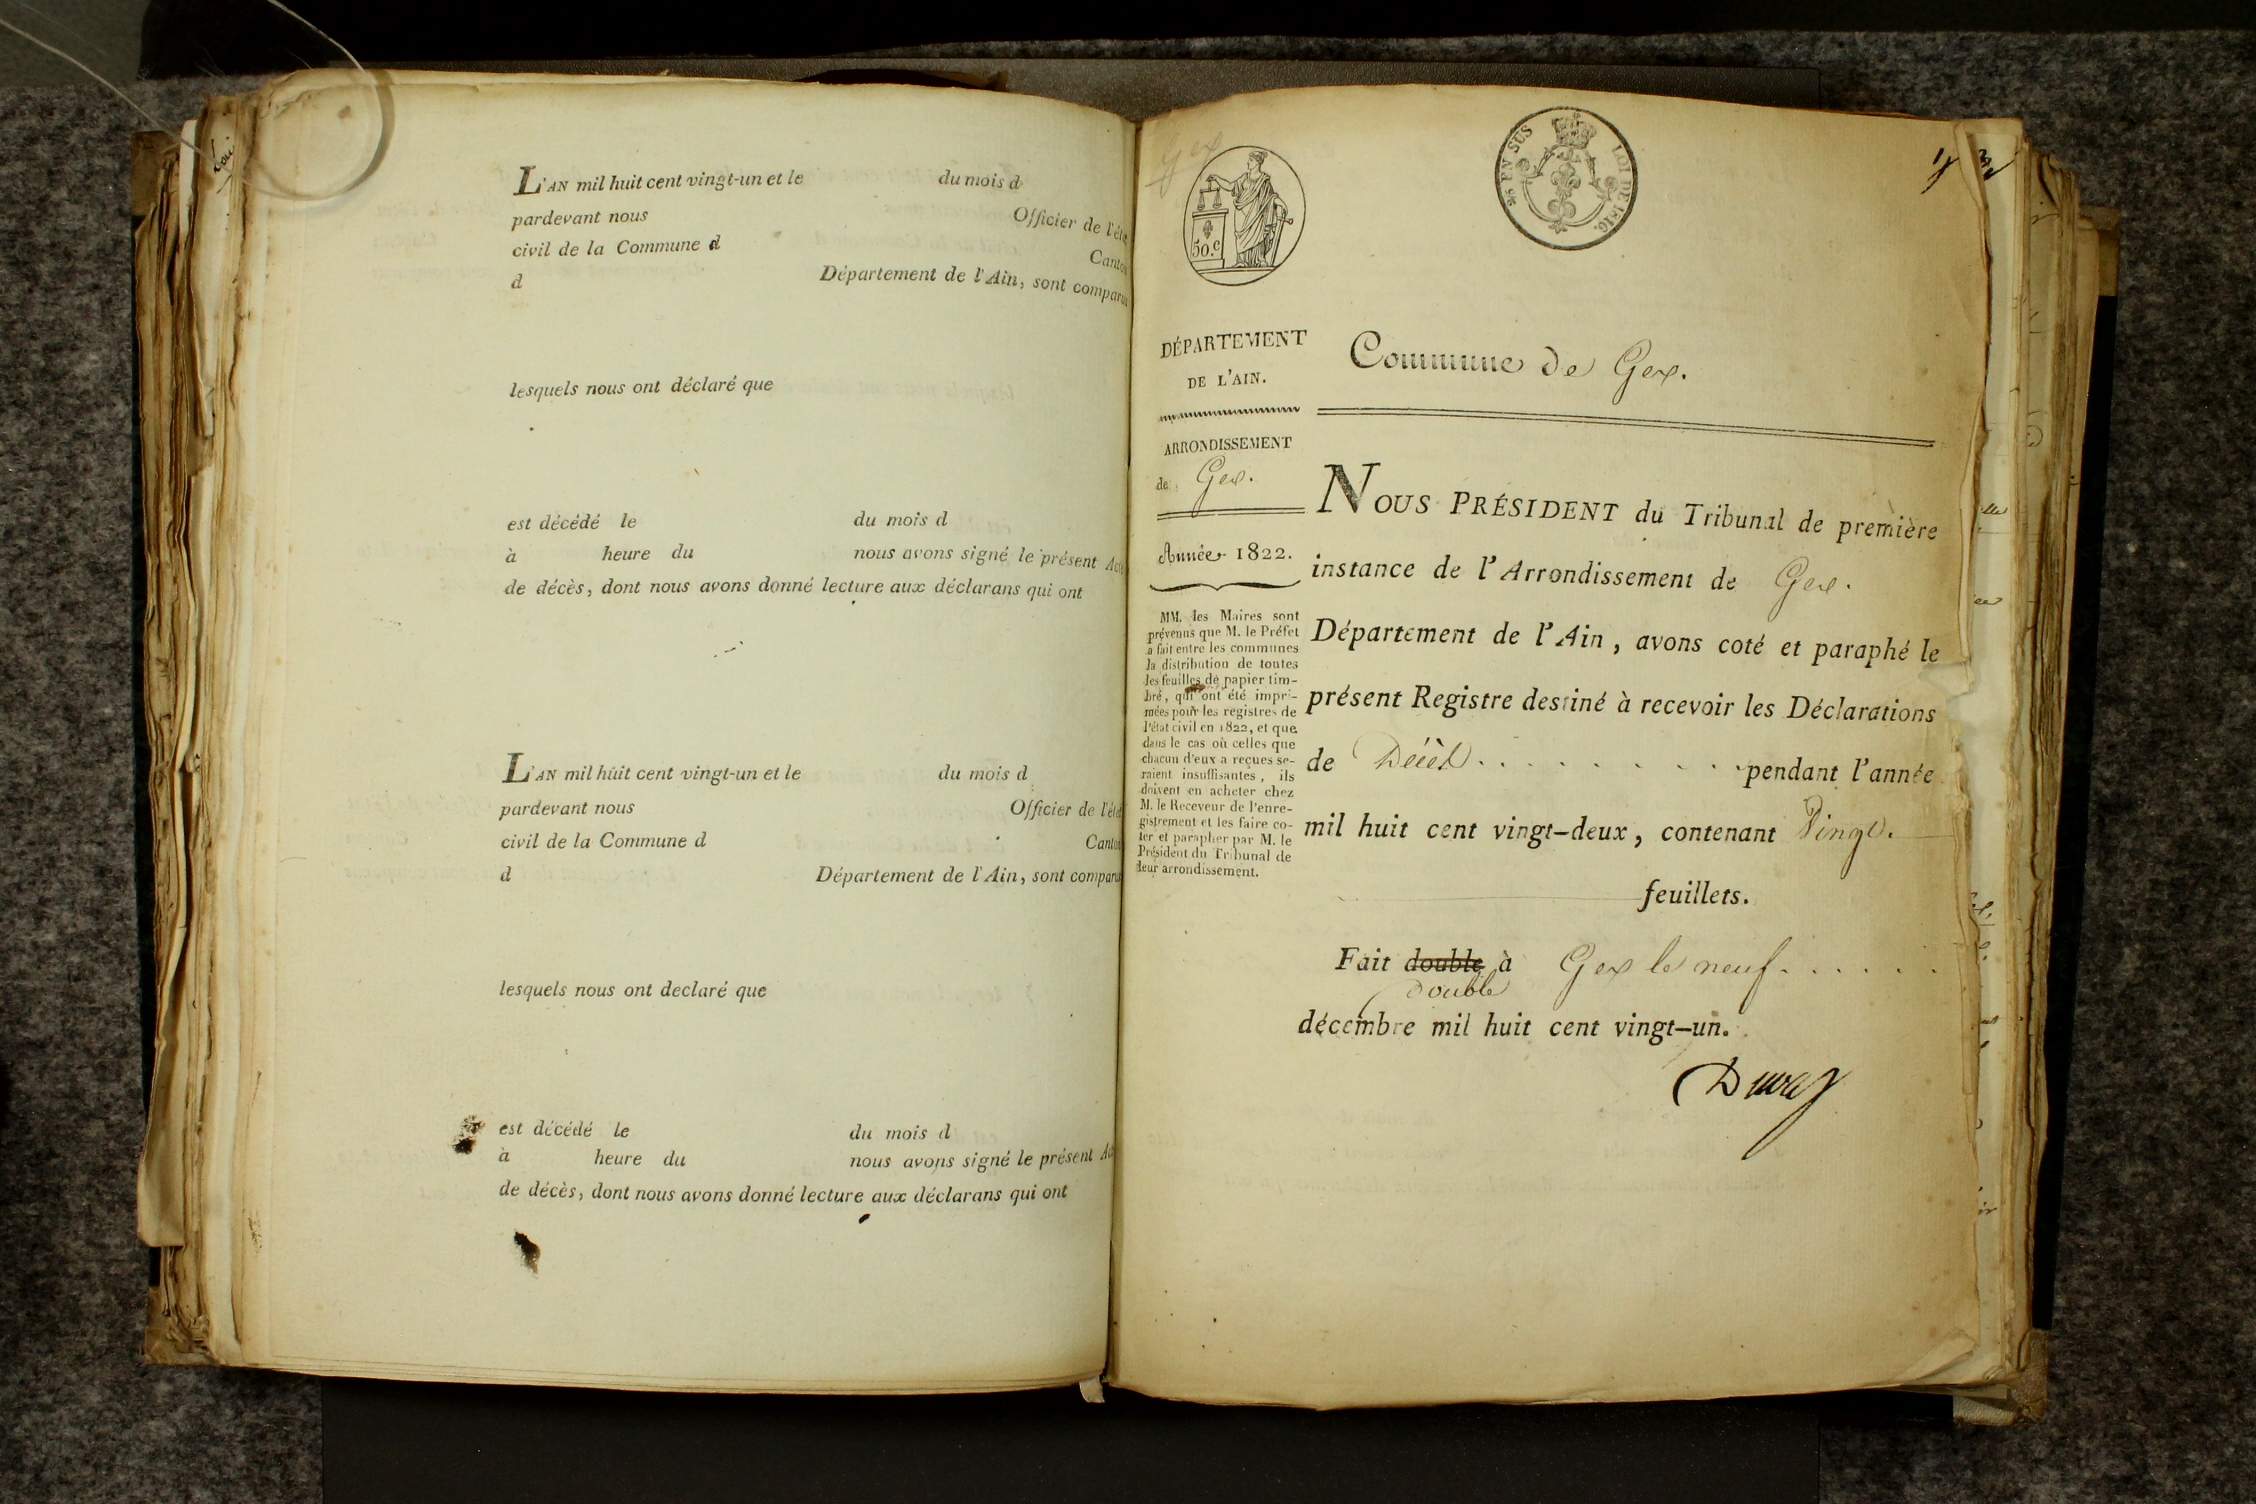 L'AN mil huit cent vingt-un et le du mois d
pardevant nous Officier de l'état
civil de la Commune d Canton
d Département de l'Ain, sont comparus
lesquels nous ont déclaré que
est décédé le du mois d
à heure du nous avons signé le présent Acte
de décès, dont nous avons donné lecture aux déclarans qui ont
L'AN mil huit cent vingt-un et le du mois d
pardevant nous Officier de l'état
civil de la Commune d Canton
d Département de l'Ain, sont comparus
lesquels nous ont declaré que
est décédé le du mois d
à heure du nous avons signé le présent Acte
de décès, dont nous avons donné lecture aux déclarans qui ont
Gex
50.c
EN SUS
LOI DE 1816.
DÉPARTEMENT
DE L'AIN.
ARRONDISSEMENT
de Gex.
Année 1822.
MM. les Maires sont
prévenus que M. le Préfet
a fait entre les communes
la distribution de toutes
les feuilles de papier tim-
bré, qui ont été impri-
mées pour les registres de
l'état civil en 1822, et que
dans le cas où celles que
chacun d'eux a reçues se-
raient insuffisantes, ils
doivent en acheter chez
M. le Receveur de l'enre-
gistrement et les faire co-
ter et parapher par M. le
Président du Tribunal de
leur arrondissement.
Commune de Gex.
NOUS PRÉSIDENT du Tribunal de première
instance de l'Arrondissement de Gex.
Département de l'Ain, avons coté et paraphé le
présent Registre destiné à recevoir les Déclarations
de Décès pendant l'année
mil huit cent vingt-deux, contenant Vingt.
feuillets.
Fait double à Gex le neuf
double
décembre mil huit cent vingt-un.